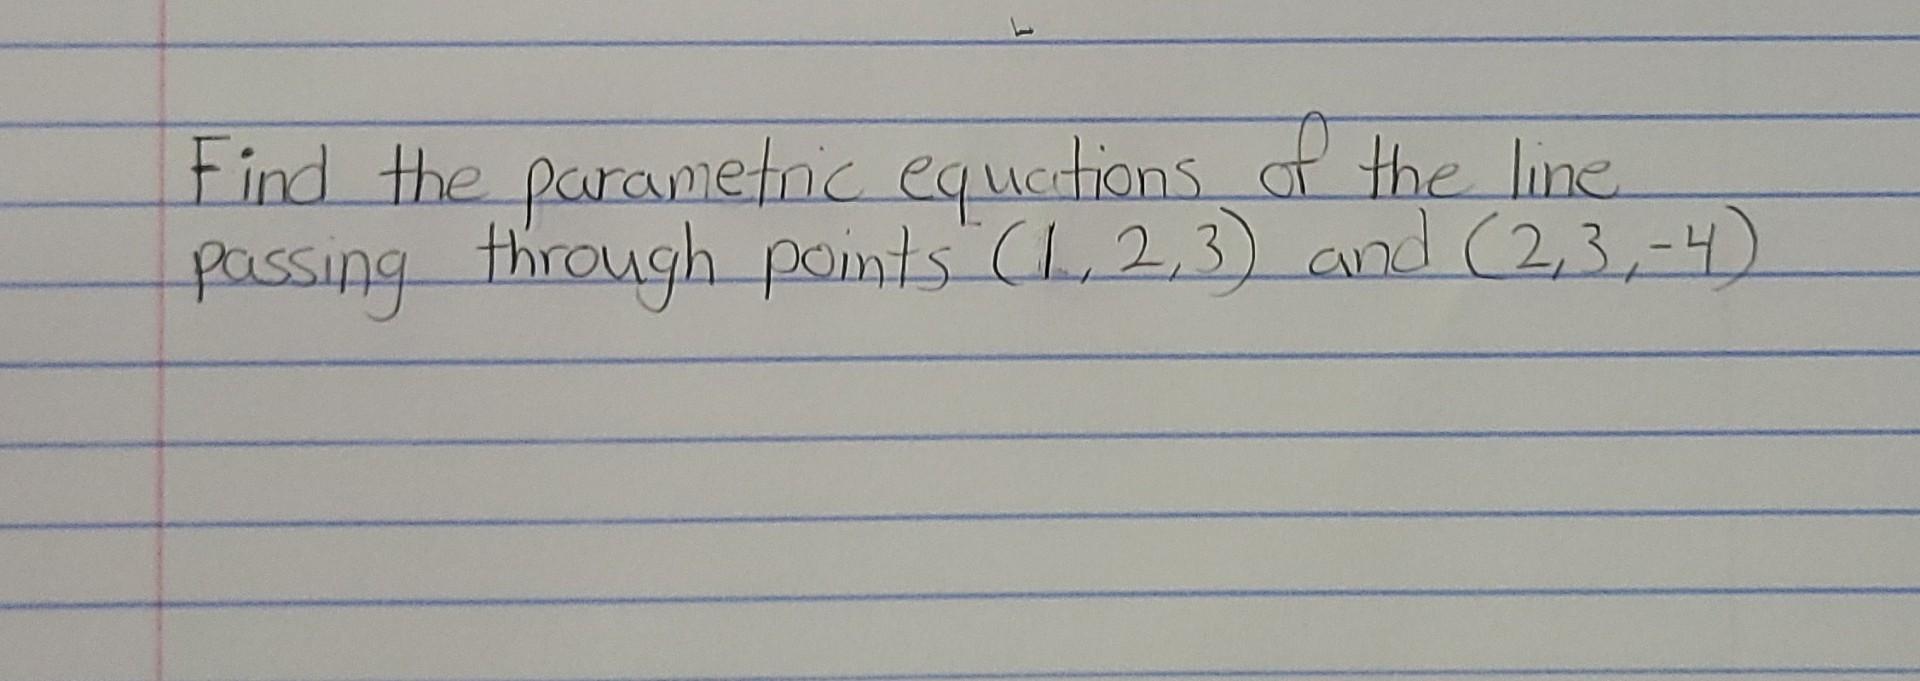 Find the parametric equations of the line
passing through points (1, 2, 3) and (2, 3, -4)